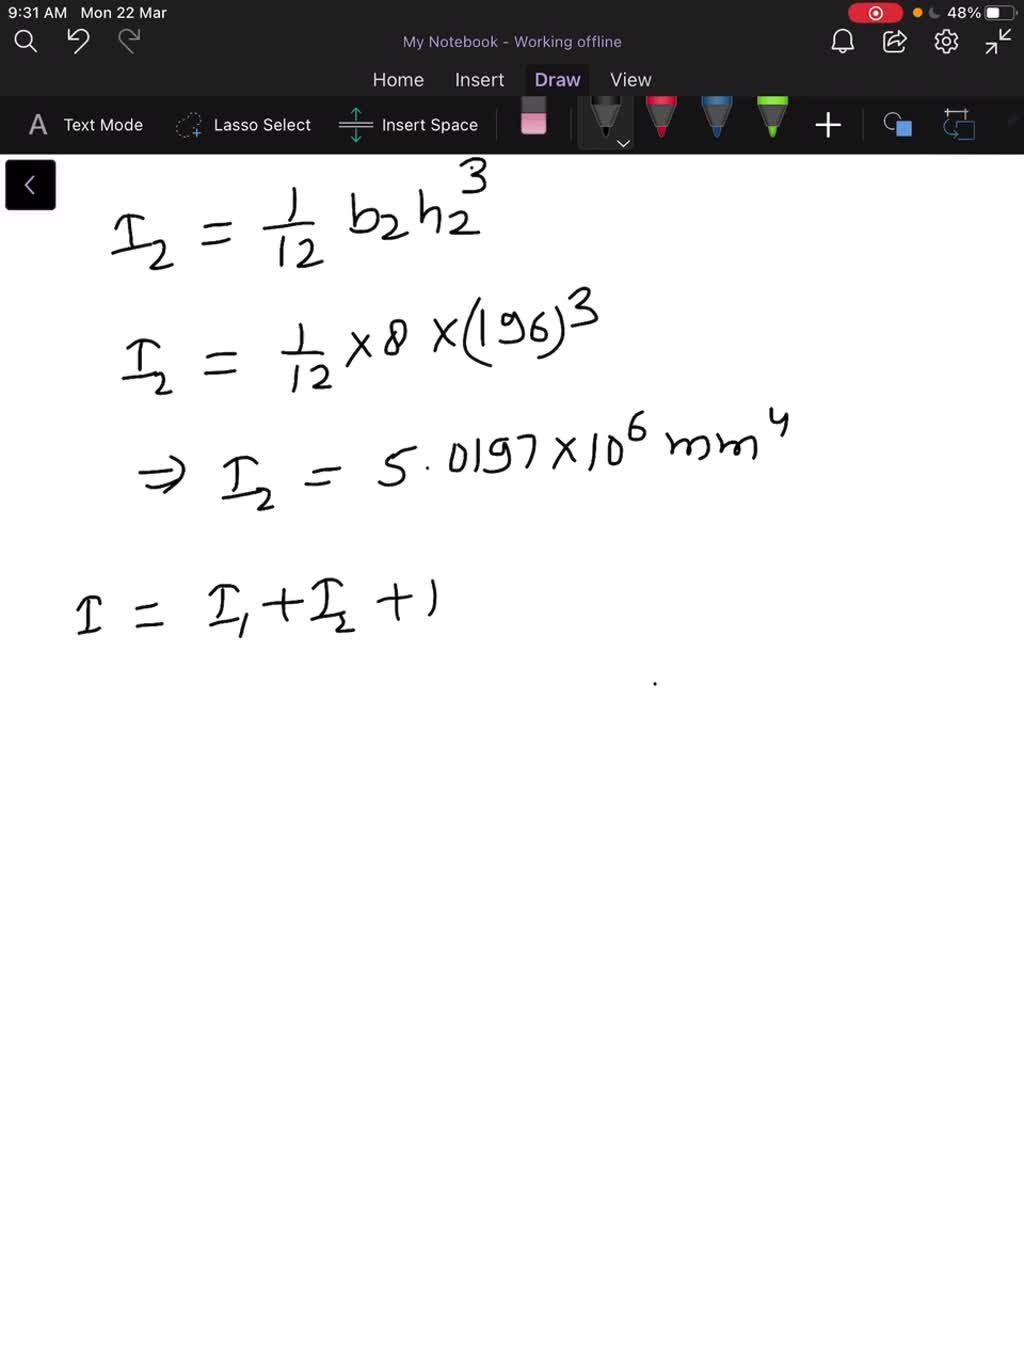 9:31 AM Mon 22 Mar 48%
My Notebook - Working offline
Home Insert Draw View
A Text Mode Lasso Select Insert Space
I₂ = 1/12 b₂h₂³
I₂ = 1/12 × 8 × (196)³
⇒ I₂ = 5.0197 × 10⁶ mm⁴
I = I₁ + I₂ + 1